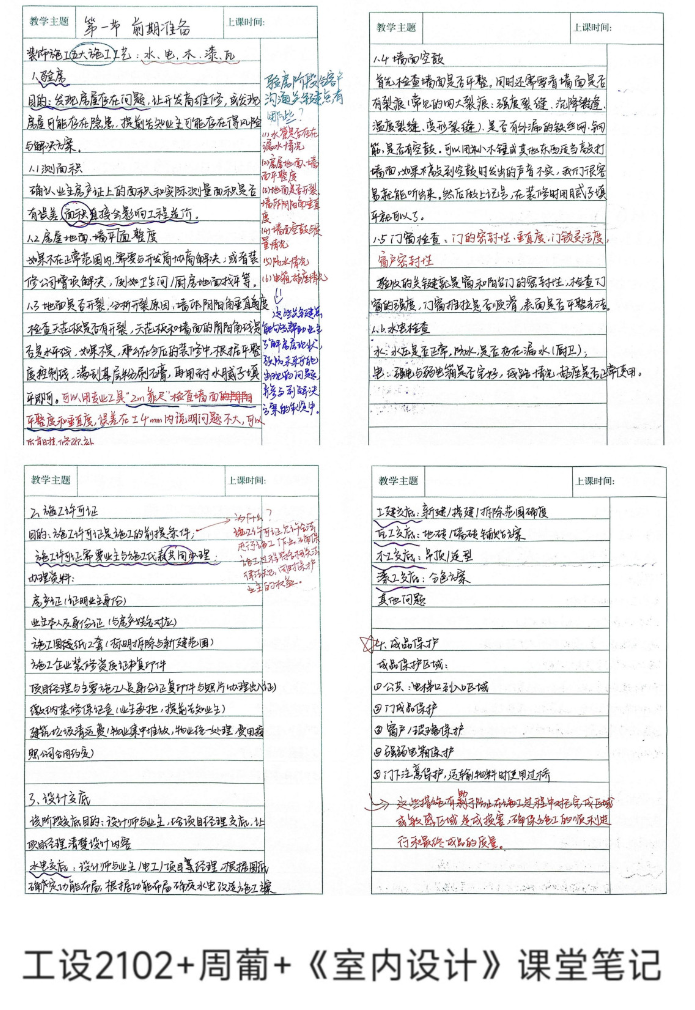 教学主题
第一节 前期准备
上课时间:
装饰施工五大施工工艺:水、电、木、漆、瓦
1.验房
目的:发现房屋存在问题,让开发商维修,或发现
房屋可能存在隐患,提前告知业主可能存在得风险
与解决方案。
1.1 测面积
确认业主房产证上的面积和实际测量面积是否
有误差,面积直接会影响工程造价。
1.2 房屋地面、墙平面整度
如果不在正常范围内,需要与开发商协商解决,或者装
修公司增项解决,例如卫生间/厨房地面找平等。
1.3 地面是否开裂,分析开裂原因,墙体阴阳角垂直角度
检查天花板是否有开裂,天花板和墙面的阴阳角线误
否是水平线,如果不是,那么在今后的装修中,根据平整
度控制线,涌到基层粉刷石膏,再用耐水腻子填
平即可。可以用专业工具"2m靠尺"检查墙面的
平整度和垂直度,误差在±4mm内说明问题不大,可以
验房阶段与客户
沟通关键点有
哪些?
(1)水管是否存在
漏水情况
(2)房屋地面、墙
面平整度
(3)地面是否开裂
墙体阴阳角垂直
度
(4)墙面空鼓与
质量情况
(5)防水情况
教学主题
上课时间:
1.4 墙面空鼓
首先检查墙面是否平整,同时还需要看墙面是否
有裂痕(常见的四大裂痕:强度裂缝、沉降裂缝、
温度裂缝、变形裂缝)。是否有外漏的铁丝网、钢
筋,是否有空鼓。可以用机小木锤或其他东西反复敲打
墙面,如果不敲到空鼓时发出的声音不实,我们很容
易就能听出来,然后做上记号,在装修时用腻子填
平就可以了。
1.5 门窗检查、门的密封性、垂直度,门锁灵活度,
窗户密封性
验收的关键就是窗和阳台门的密封性,检查门
窗的强度,门窗推拉是否顺滑,表面是否平整方法。
1.6 水电检查
水:水压是否正常,防水是否存在漏水(厨卫)。
电:强电与弱电箱是否完好,线路情况,插座是否正常使用。
教学主题
上课时间:
2、施工许可证
目的:施工许可证是施工的前提条件,
施工许可证需要业主与施工代表共同办理。
办理资料:
房产证(证明业主身份)
业主本人及身份证(与房产姓名对应)
施工图纸纸二套(标明拆除与新建范围)
施工企业装修资质证书复印件
项目经理与主要施工人员身份证复印件与照片(办理出入证)
缴纳装修保证金(业主承担,提前告知业主)
建筑垃圾清运费(物业集中堆放,物业统一处理,费用按
照公司合同约定)
为什么?
施工许可证允许合法
进行施工作业,确保
业主的权益。
3、设计交底
该阶段交底目的:设计师与业主,给项目经理交底,让
项目经理清楚设计内容
水电交底:设计师与业主/电工/项目经理,根据图纸
确定实功能布局,根据功能布局确定水电改造施工方案
教学主题
上课时间:
土建交底:新建/搭建/拆除范围确定
瓦工交底:地砖/墙砖铺贴方案
木工交底:吊顶/造型
漆工交底:分色方案
其他问题
☆4.成品保护
成品保护区域:
①公共:电梯口到入口区域
②门成品保护
③窗户/玻璃保护
④强弱电箱保护
⑤门下注意保护,运输物料时使用过桥
这些措施有助于防止在施工过程中对已完成区域
或敏感区域造成损害,确保施工的顺利进
行和最终成品的质量。
工设2102+周葡+《室内设计》课堂笔记